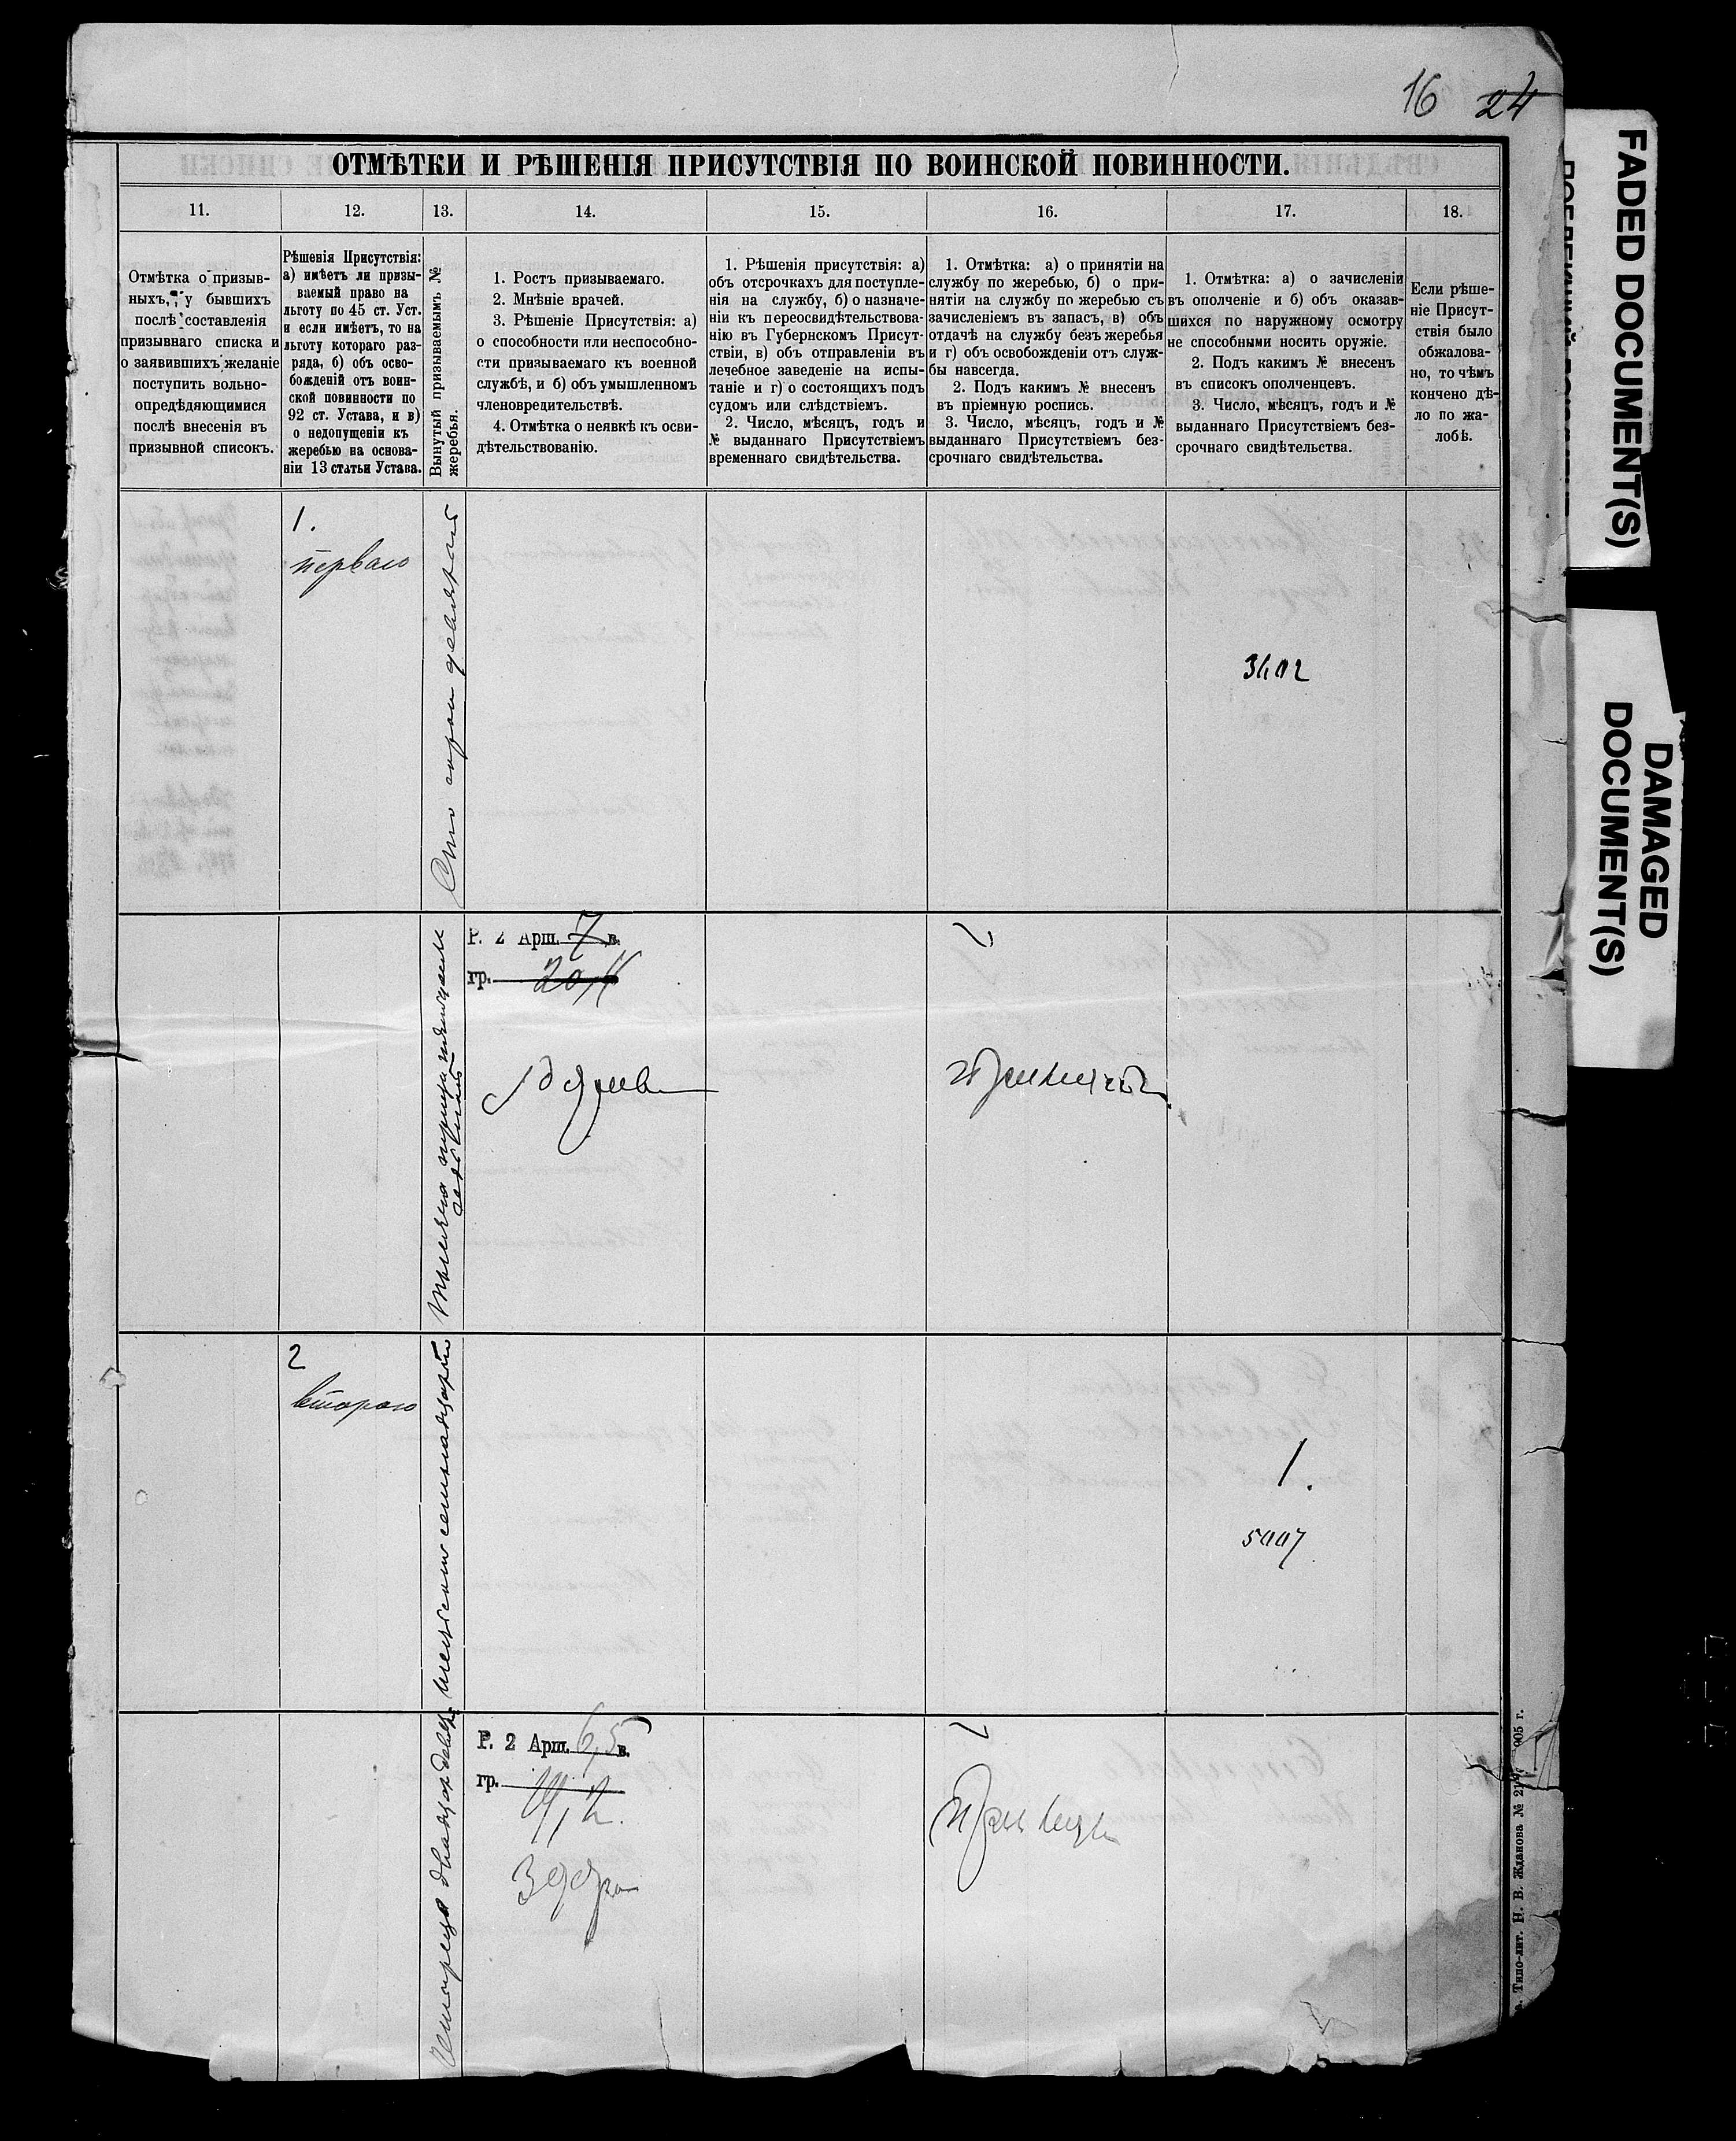 16 24
ОТМѢТКИ И РѢШЕНІЯ ПРИСУТСТВІЯ ПО ВОИНСКОЙ ПОВИННОСТИ.
11.
12.
13.
14.
15.
16.
17.
18.
Отмѣтка о призыв-
ныхъ, у бывшихъ
послѣ составленія
призывнаго списка и
о заявившихъ желаніе
поступить вольно-
опредѣдяющимися
послѣ внесенія въ
призывной списокъ.
Рѣшенія Присутствія:
а) имѣетъ ли призы-
ваемый право на
льготу по 45 ст. Уст.
и если имѣетъ, то на
льготу котораго раз-
ряда, б) объ осво-
божденій отъ воин-
ской повинности по
92 ст. Устава, и в)
о недопущеніи къ
жеребью на основа-
ніи 13 статьи Устава.
Вынутый призываемымъ №
жеребья.
1. Ростъ призываемаго.
2. Мнѣніе врачей.
3. Рѣшеніе Присутствія: а)
о способности или неспособно-
сти призываемаго къ военной
службѣ, и б) объ умышленномъ
членовредительствѣ.
4. Отмѣтка о неявкѣ къ осви-
дѣтельствованію.
1. Рѣшенія присутствія: а)
объ отсрочкахъ для поступле-
нія на службу, б) о назначе-
ніи къ переосвидѣтельствова-
нію въ Губернскомъ Присут-
ствіи, в) объ отправленіи въ
лечебное заведеніе на испы-
таніе и г) о состоящихъ подъ
судомъ или слѣдствіемъ.
2. Число, мѣсяцъ, годъ и
№ выданнаго Присутствіемъ
временнаго свидѣтельства.
1. Отмѣтка: а) о принятіи на
службу по жеребью, б) о при-
нятіи на службу по жеребью съ
зачисленіемъ въ запасъ, в) объ
отдачѣ на службу безъ жеребья
и г) объ освобожденіи отъ служ-
бы навсегда.
2. Подъ какимъ № внесенъ
въ пріемную роспись.
3. Число, мѣсяцъ, годъ и №
выданнаго Присутствіемъ без-
срочнаго свидѣтельства.
1. Отмѣтка: а) о зачисленіи
въ ополченіе и б) объ оказав-
шихся по наружному осмотру
не способными носить оружіе.
2. Подъ какимъ № внесенъ
въ списокъ ополченцевъ.
3. Число, мѣсяцъ, годъ и №
выданнаго Присутствіемъ без-
срочнаго свидѣтельства.
Если рѣше-
ніе Присут-
ствія было
обжалова-
но, то чѣмъ
кончено дѣ-
ло по жа-
лобѣ.
1.
перваго
Сто сорок девятый
Р. 2 Арш. 7 в.
гр.
2
втораго
шестьсот семнадцатый
1.
5007
Р. 2 Арш. 6,5 в.
гр.
Типо-лит. Н. В. Жданова №
905 г.
FADED DOCUMENT(S)
DAMAGED
DOCUMENT(S)